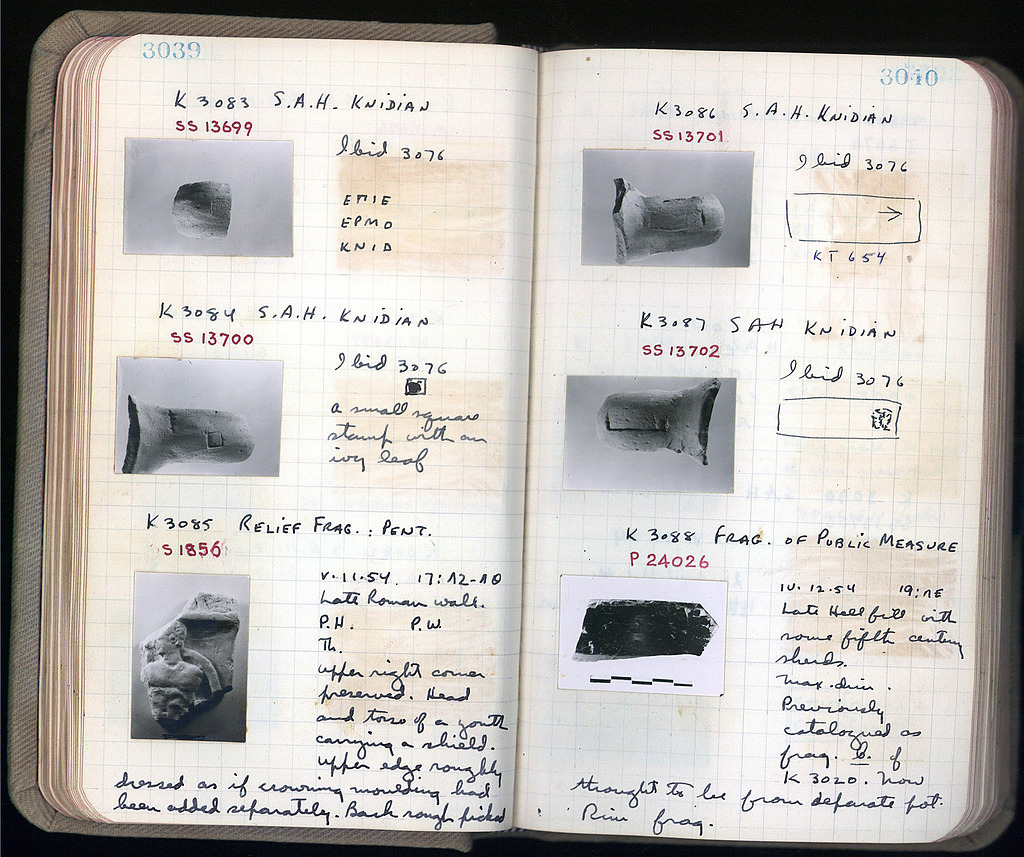 3039
K 3083 S.A.H. KNIDIAN
SS 13699
Ibid 3076
ΕΠΙΕ
ΕΡΜΟ
ΚΝΙD
K 3084 S.A.H. KNIDIAN
SS 13700
Ibid 3076
a small square
stamp with an
ivy leaf
K 3085 RELIEF FRAG.: PENT.
S 1856
V.11.54. 17:
Late Roman wall.
P.H. P.W.
Th.
upper right corner
preserved. Head
and torso of a youth
carrying a shield.
upper edge roughly
dressed as if crowning moulding had
been added separately. Back rough picked
3040
K 3086 S.A.H. KNIDIAN
SS 13701
Ibid 3076
KT 654
K 3087 SAH KNIDIAN
SS 13702
Ibid 3076
K 3088 FRAG. OF PUBLIC MEASURE
P 24026
IV.12.54 19:
Late Hell fill with
some fifth century
sherds.
max. dim.
Previously
catalogued as
frag. b. of
K 3020. Now
thought to be from separate pot.
Rim frag.